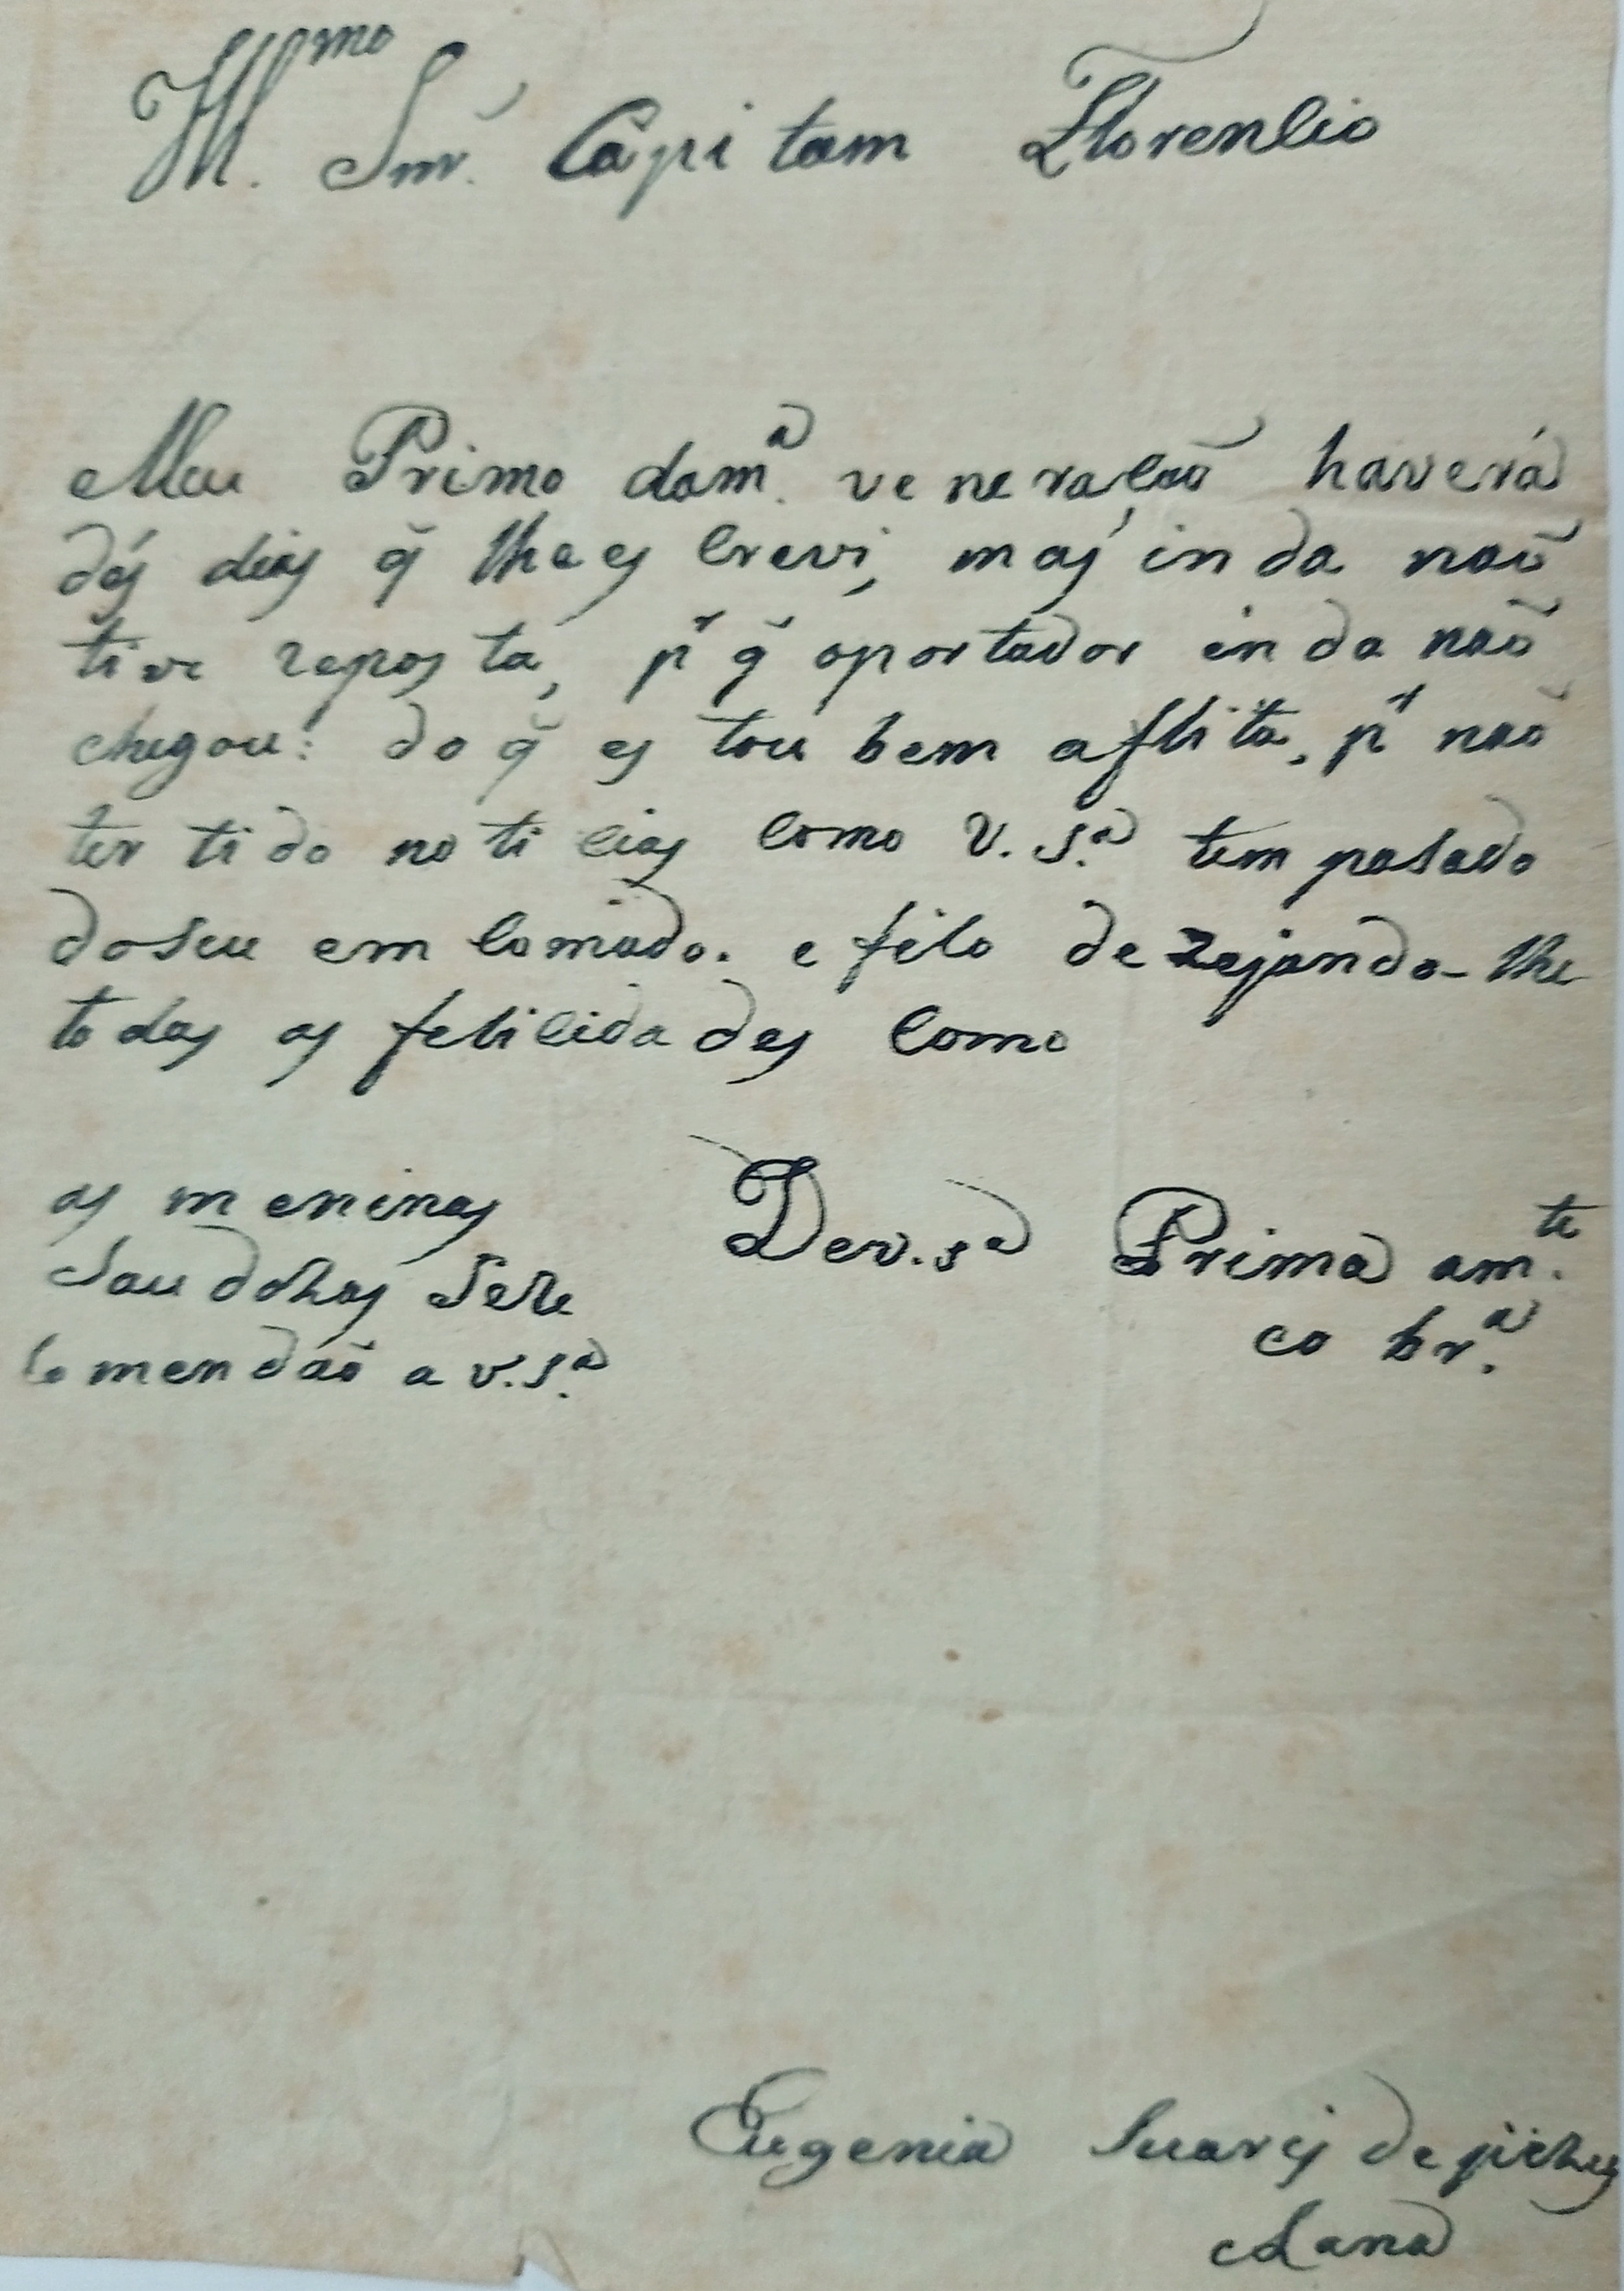 Ill.mo Snr. Capitam Florencio
Meu Primo dam.a veneração haverá
dés dias q̃ lhe escrevi, mas inda naõ
tive reposta, pr q̃ oportador inda naõ
chegou: do q̃ estou bem aflita, pr naõ
ter tido noticias como V. S.a tem pasado
doseu emcomodo. e fico dezejando-lhe
todas as felicidades como
as meninas
Saudosas Sere
comendaõ a v.S.a
Dev.sa Prima am.te
eo br.a
Eugenia Suares de
Lana